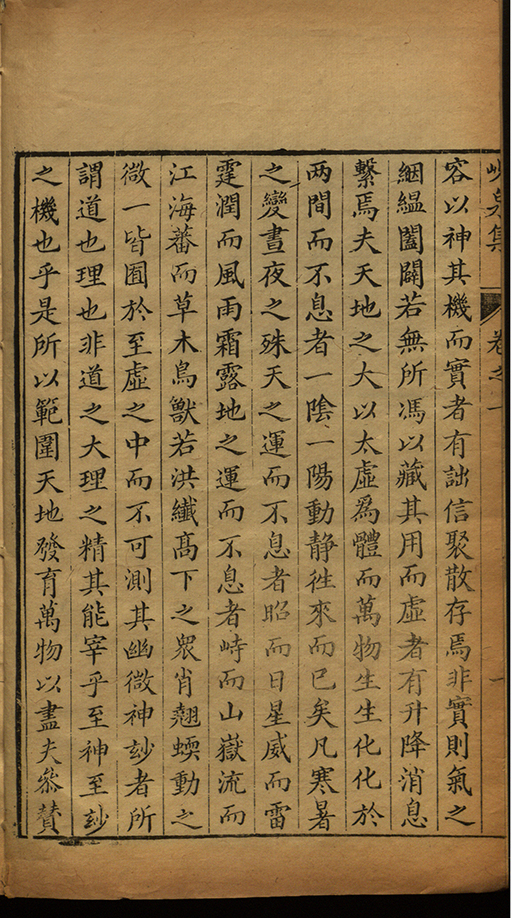 峴泉集 卷之一 一
容以神其機而實者有詘信聚散存焉非實則氣之
絪縕闔闢若無所馮以藏其用而虛者有升降消息
繫焉夫天地之大以太虛爲體而萬物生生化化於
两間而不息者一陰一陽動静徃來而已矣凡寒暑
之變晝夜之殊天之運而不息者昭而日星威而雷
霆潤而風雨霜露地之運而不息者峙而山嶽流而
江海蕃而草木鳥獸若洪纖髙下之衆肖翹蝡動之
微一皆囿於至虛之中而不可測其幽微神玅者所
謂道也理也非道之大理之精其能宰乎至神至玅
之機也乎是所以範圍天地發育萬物以盡夫叅賛